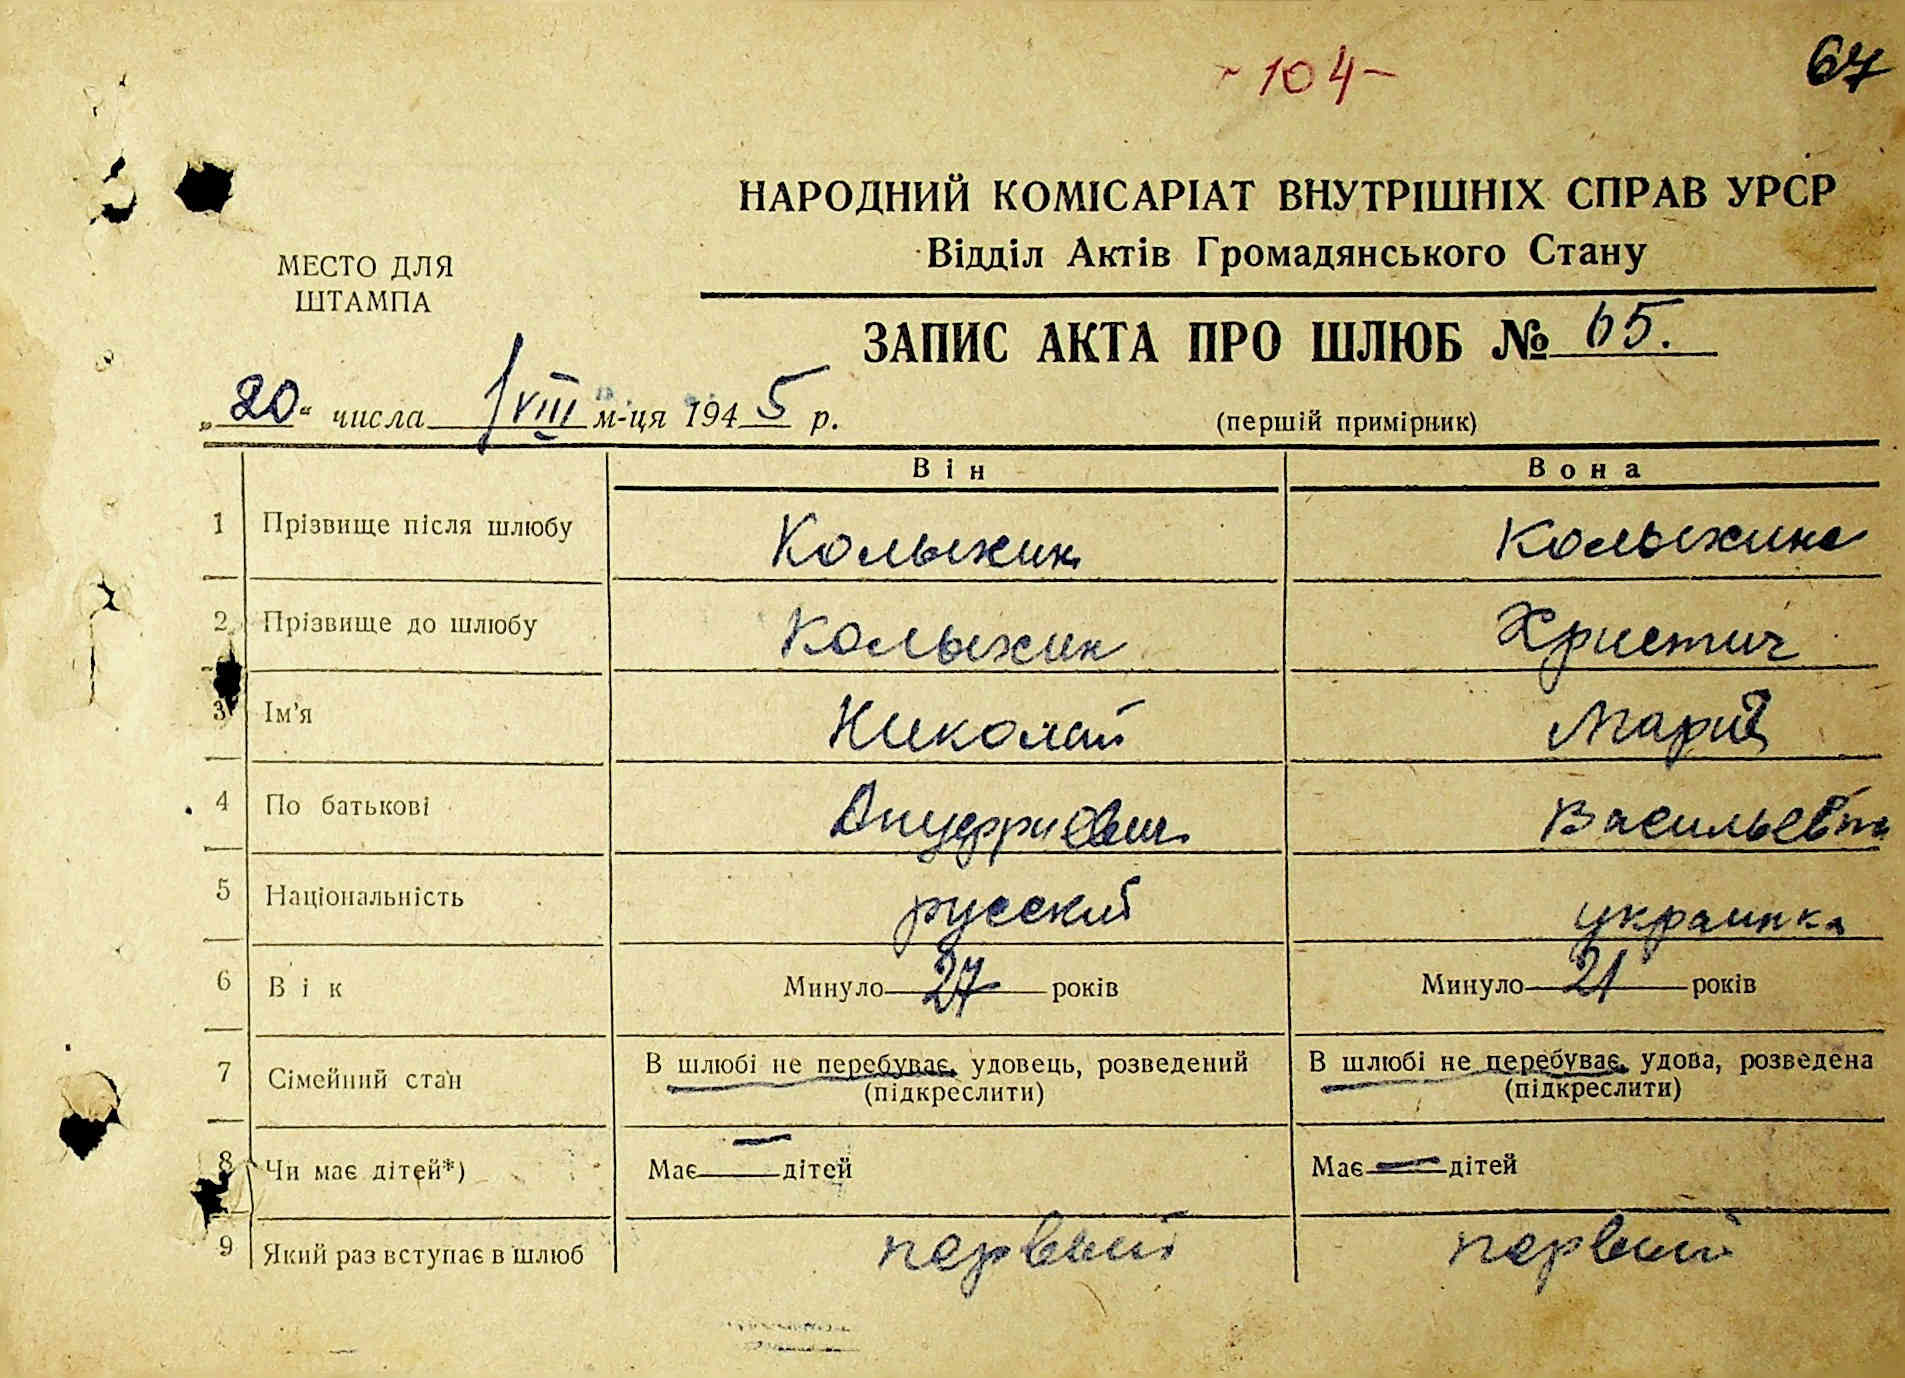 - 104 -
67
НАРОДНИЙ КОМІСАРІАТ ВНУТРІШНІХ СПРАВ УРСР
Відділ Актів Громадянського Стану
МЕСТО ДЛЯ
ШТАМПА
ЗАПИС АКТА ПРО ШЛЮБ № 65.
„20“ числа VIII м-ця 1945 р.
(першій примірник)
Він Вона
1 Прізвище після шлюбу Колыхин Колыхина
2 Прізвище до шлюбу Колыхин Христич
3 Ім'я Николай Мария
4 По батькові Ануфриевич Васильевна
5 Національність русский украинка
6 Вік Минуло 27 років Минуло 21 років
7 Сімейний стан В шлюбі не перебуває, удовець, розведений В шлюбі не перебуває, удова, розведена
(підкреслити) (підкреслити)
8 Чи має дітей*) Має — дітей Має — дітей
9 Який раз вступає в шлюб первый первый